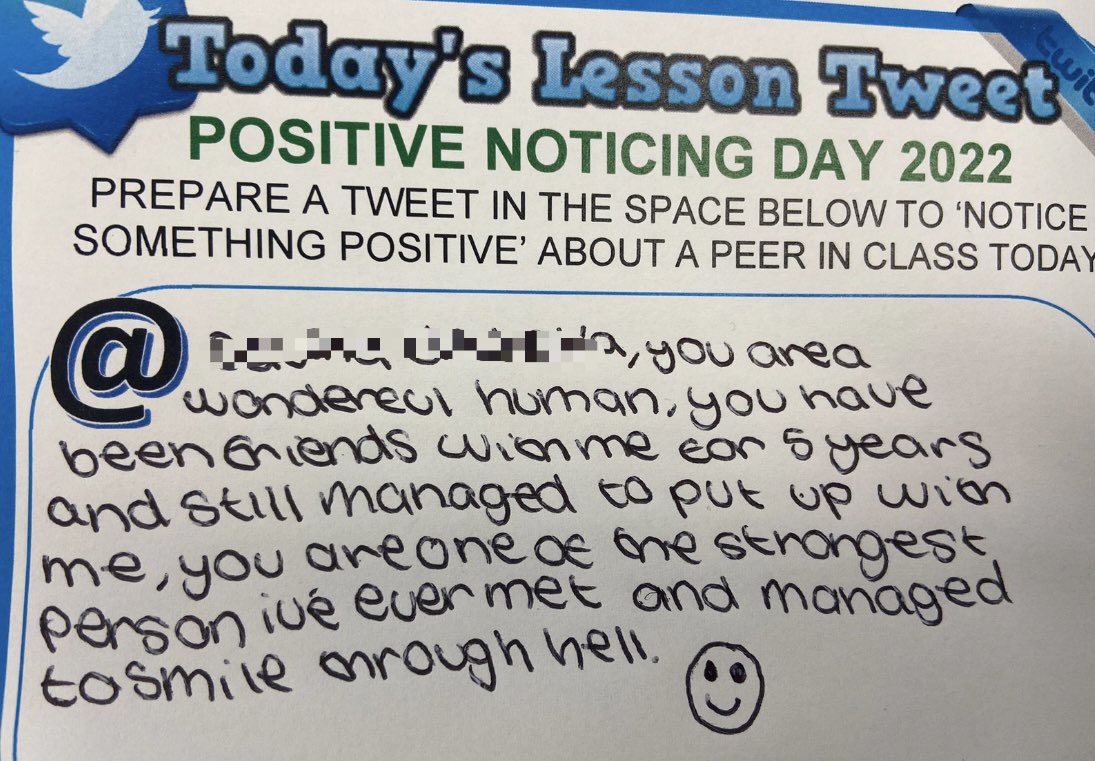 Today's Lesson Tweet
twit
POSITIVE NOTICING DAY 2022
PREPARE A TWEET IN THE SPACE BELOW TO ‘NOTICE
SOMETHING POSITIVE’ ABOUT A PEER IN CLASS TODAY
@ , you are a
wonderful human, you have
been friends with me for 5 years
and still managed to put up with
me, you are one of the strongest
person ive ever met and managed
to smile through hell.